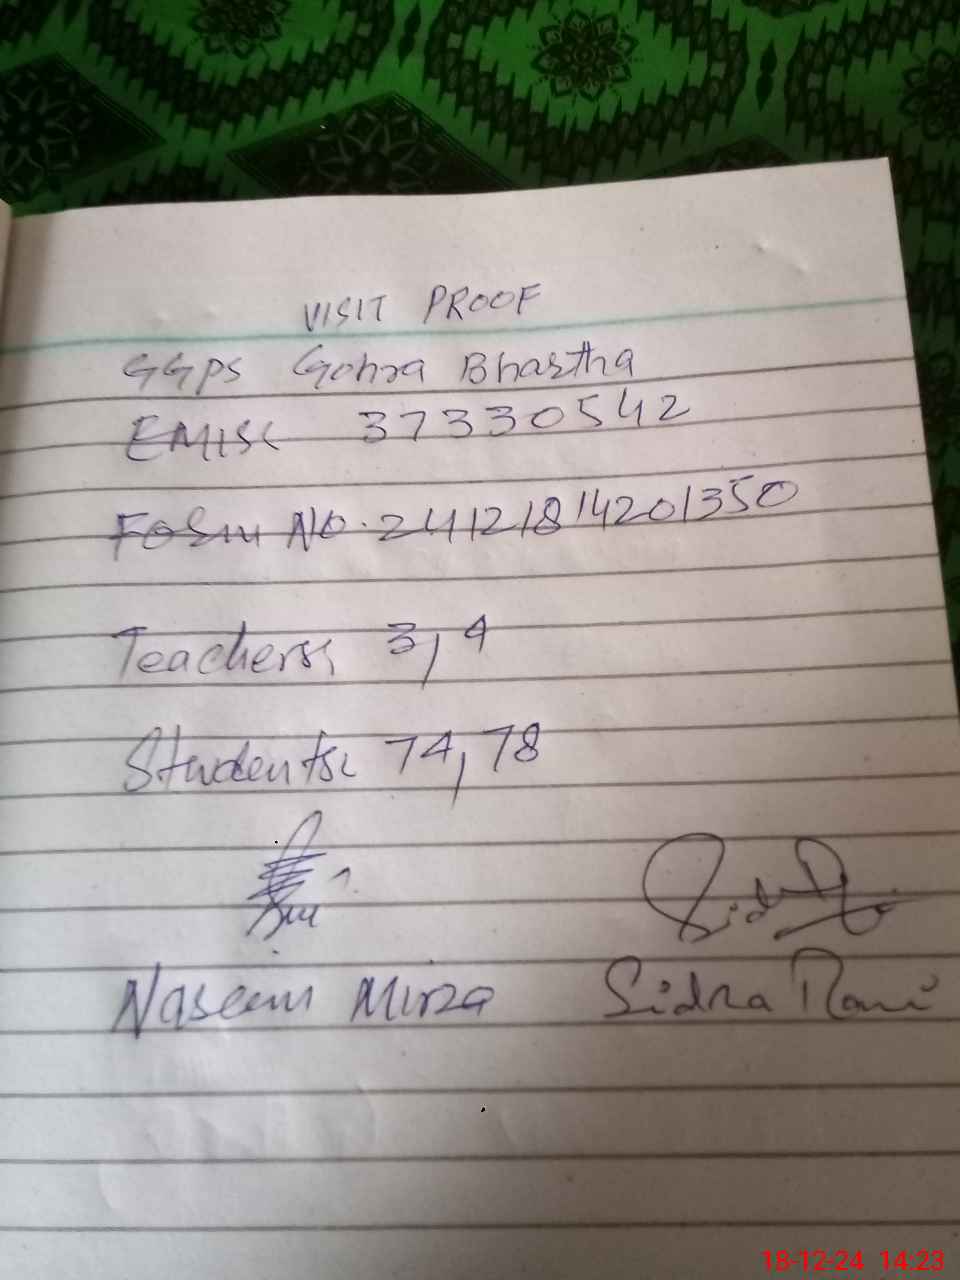 VISIT PROOF
GGPS Gohra Bhastha
EMISC 37330542
Form NO. 24121814201350
Teachers: 3, 4
Students: 74, 78
Naseem Mirza Sidra Rani
18-12-24 14:23